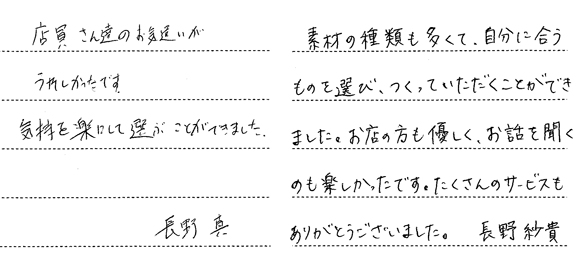 店員さん達のお気遣いが
うれしかったです
気持を楽にして選ぶことができました。
長野 真
素材の種類も多くて、自分に合う
ものを選び、つくっていただくことができ
ました。お店の方も優しく、お話を聞く
のも楽しかったです。たくさんのサービスも
ありがとうございました。 長野 紗貴